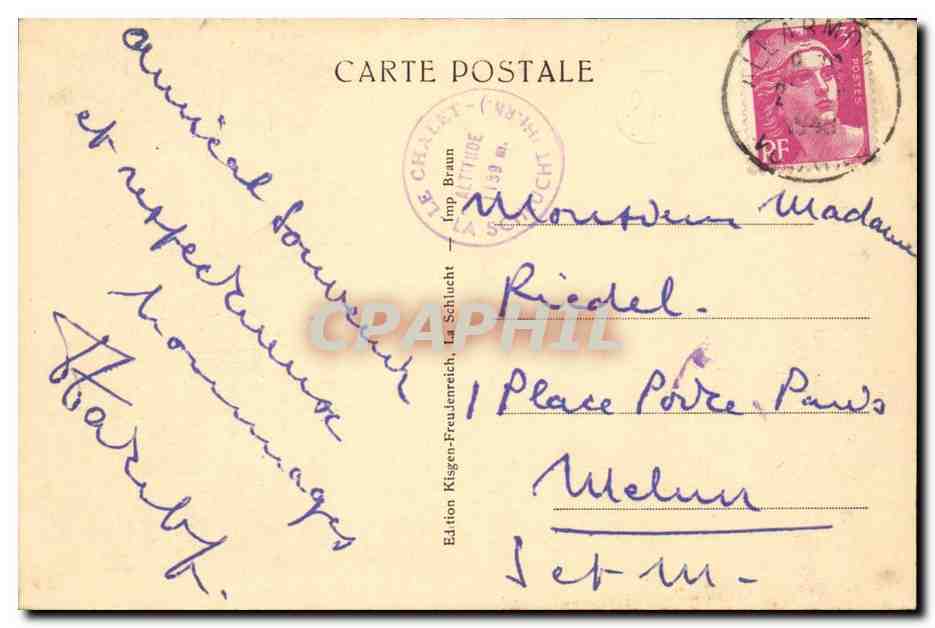 CARTE POSTALE
amical Souvenir
et respectueux
hommages
LE CHALET - (Ht-RN)
ALTITUDE
139 m.
LA SCHLUCHT
Edition Kisgen-Freudenreich, La Schlucht — Imp Braun
POSTES
RF
Monsieur Madame
Riedel.
1 Place Porte Paris
Melun
S et M-
CPAPHIL